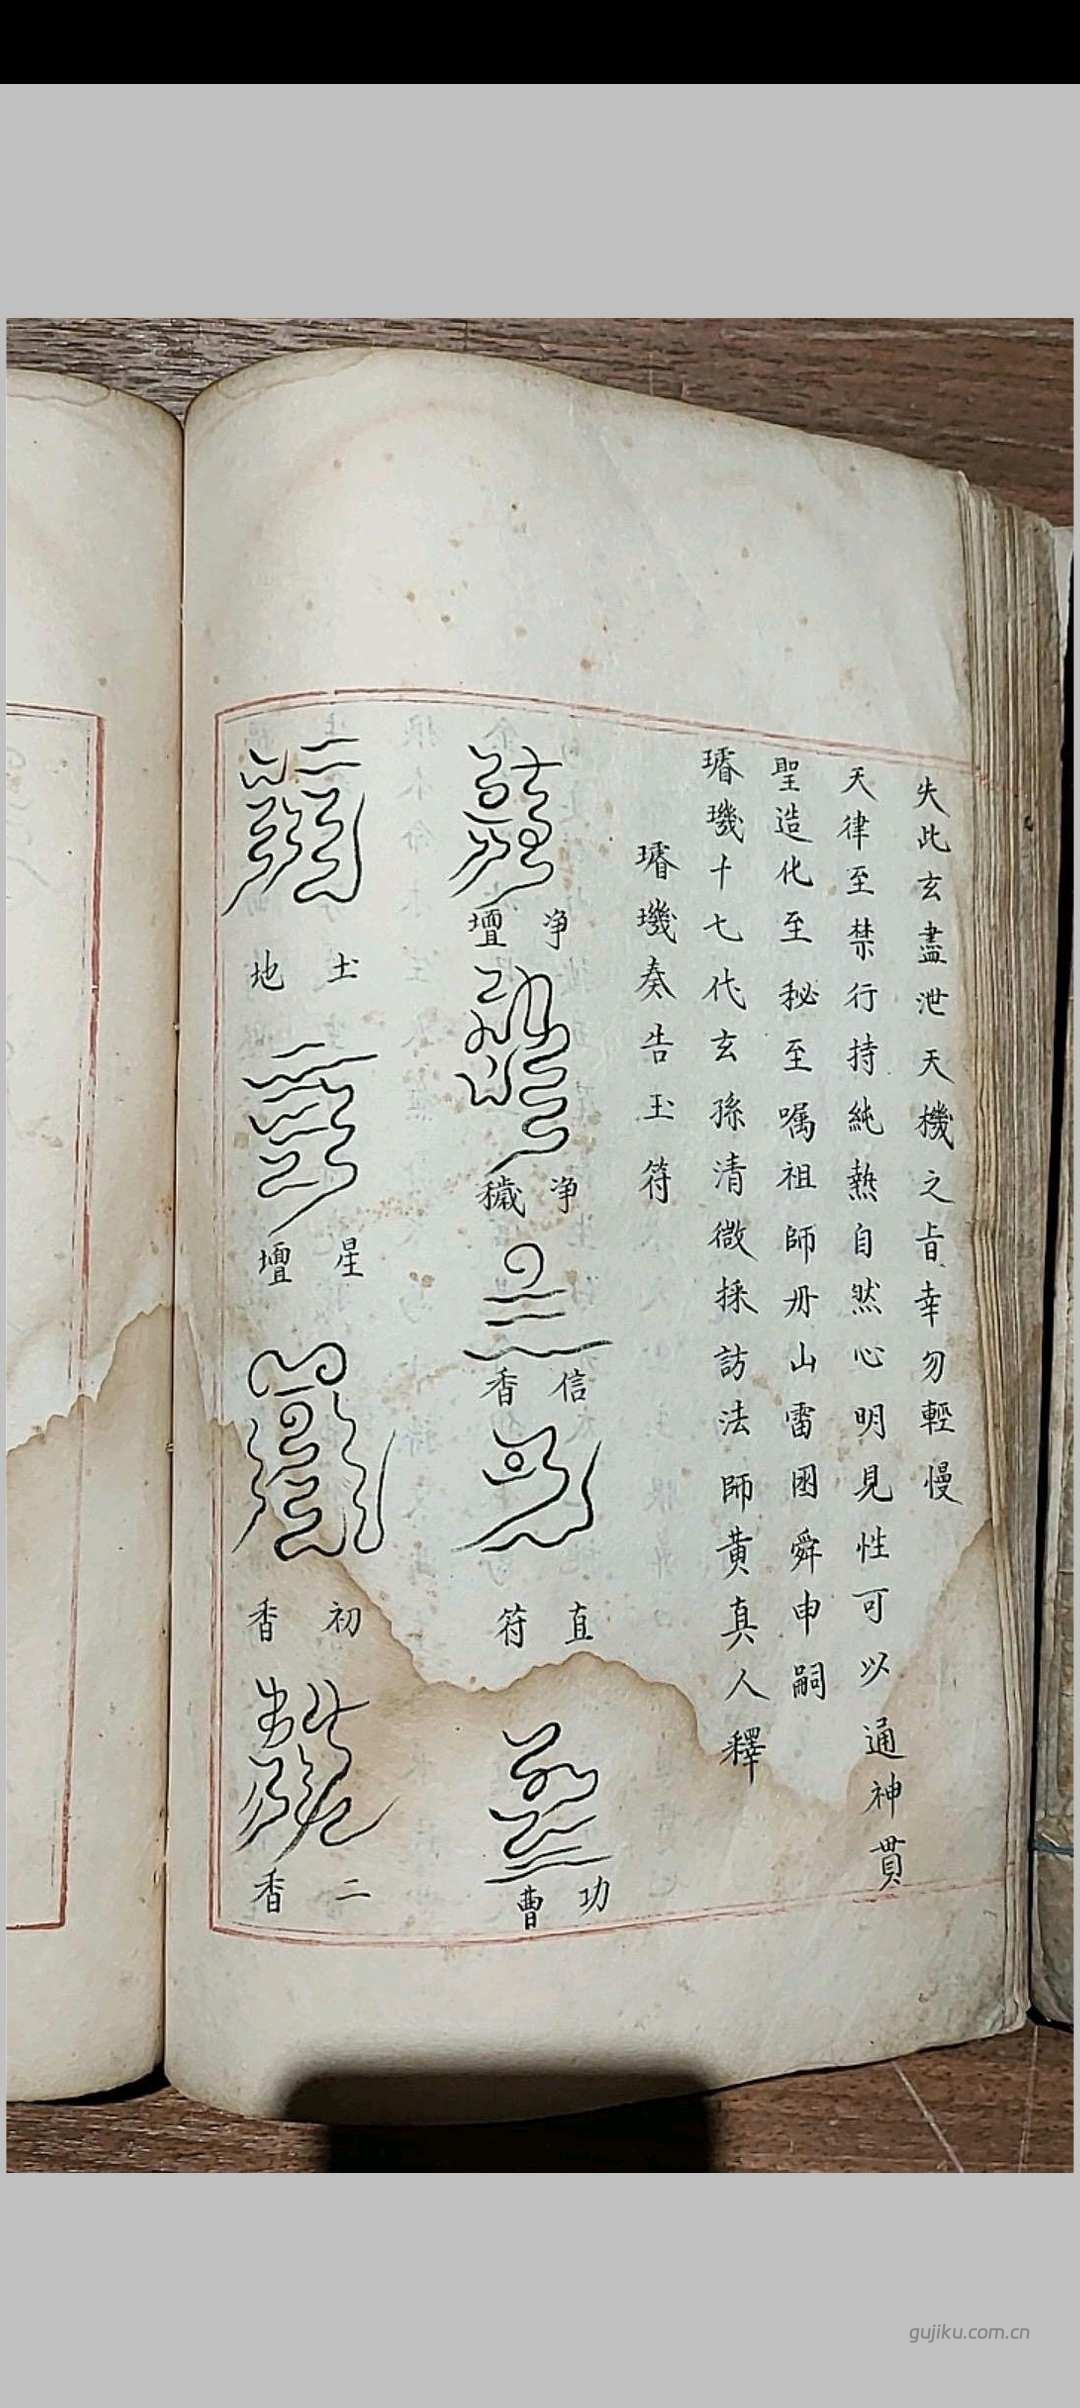 失此玄盡泄天機之旨幸勿輕慢
天律至禁行持純熟自然心明見性可以通神貫
聖造化至秘至嘱祖師丹山雷囦舜申嗣
璿璣十七代玄孫清微採訪法師黄真人釋
璿璣奏告玉符
净壇
净穢
信香
直符
功曹
土地
星壇
初香
二香
gujiku.com.cn